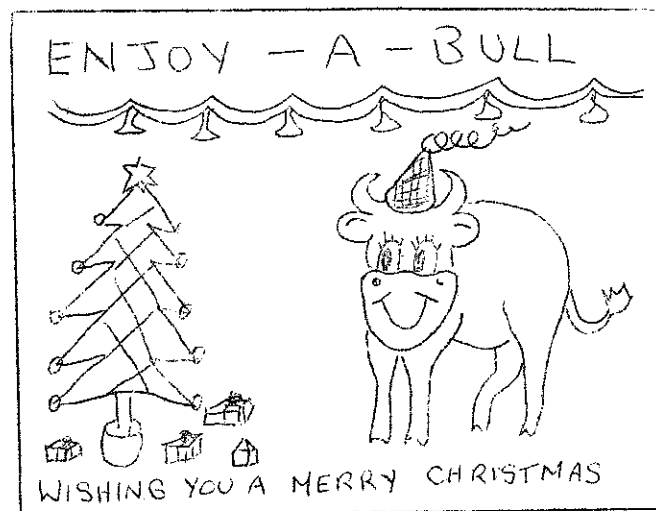 ENJOY - A - BULL
WISHING YOU A MERRY CHRISTMAS